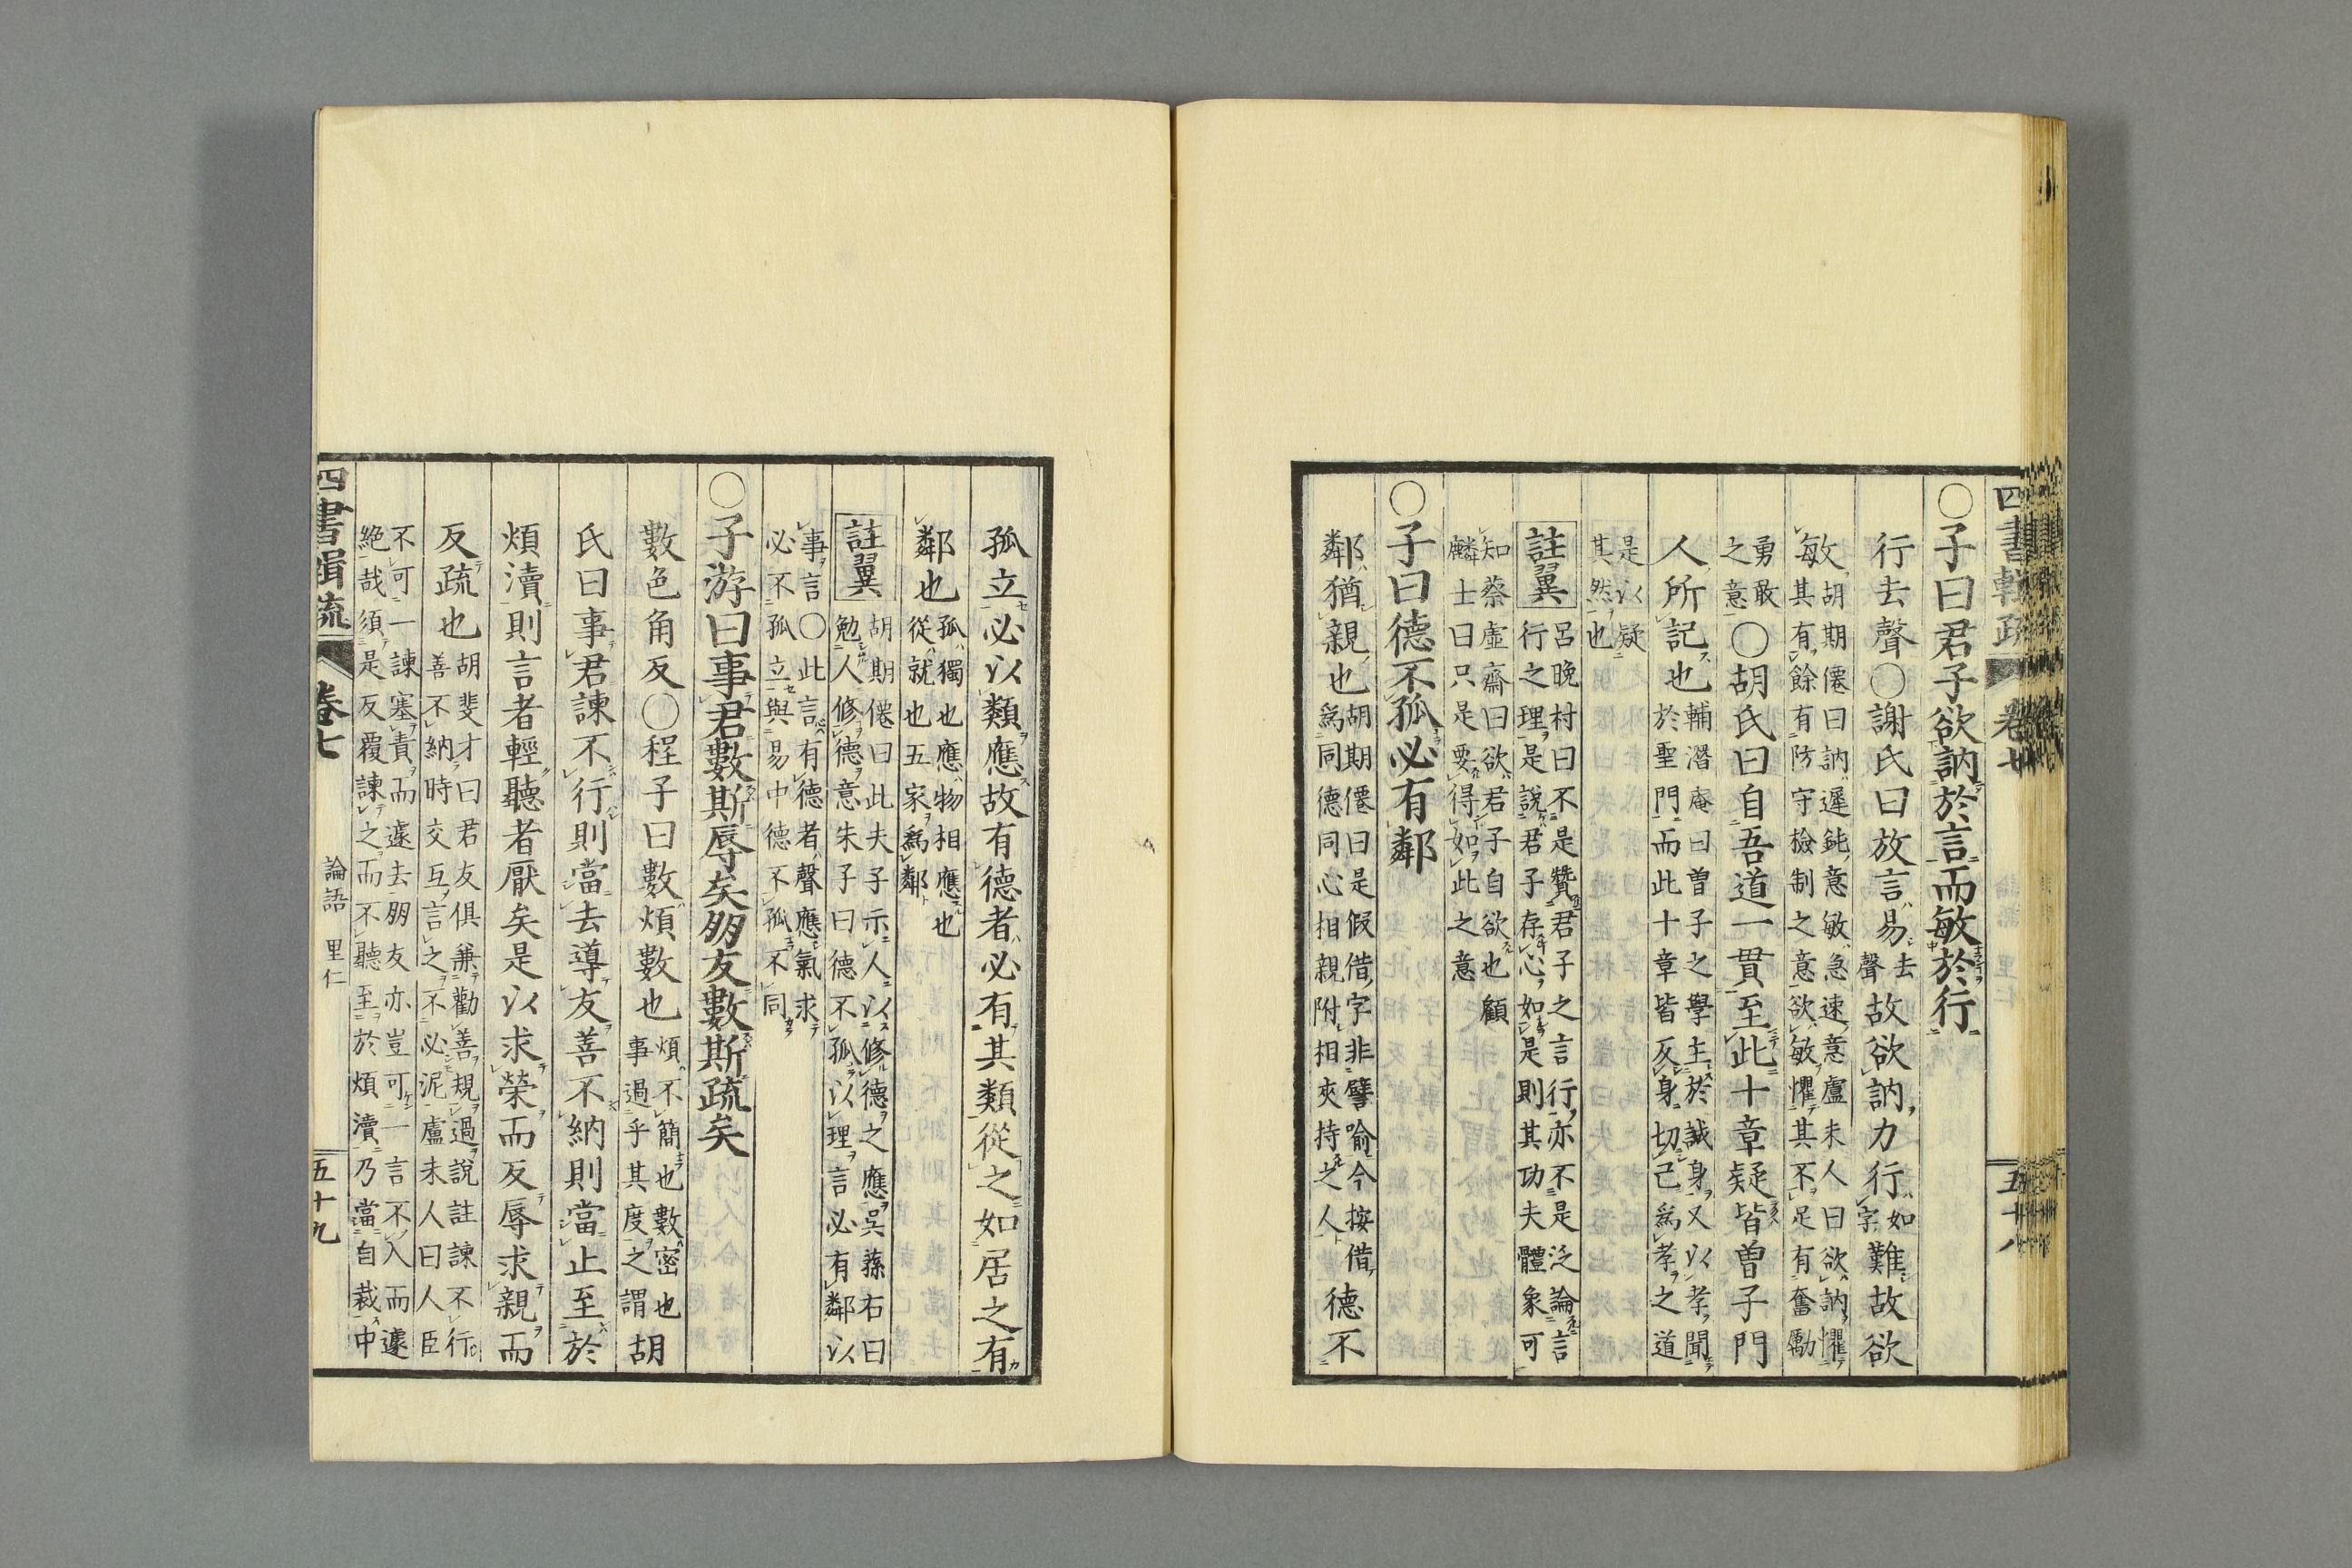 四書輯疏 卷七 論語 里仁 五十八
○子曰君子欲訥於言而敏於行
行去聲○謝氏曰放言易去聲故欲訥力行如字難故欲
敏胡期僊曰訥遲鈍意敏急速意盧未人曰欲訥懼
其有餘有防守檢制之意欲敏懼其不足有奮勵
勇敢
之意○胡氏曰自吾道一貫至此十章疑皆曾子門
人所記也輔潛庵曰曾子之學主於誠身又以孝聞
於聖門而此十章皆反身切己爲孝之道
是以疑
其然也
註翼呂晚村曰不是贊君子之言行亦不是泛論言
行之理是說君子存心如是則其功夫體象可
知蔡虛齋曰欲君子自欲也顧
麟士曰只是要得如此之意
○子曰德不孤必有鄰
鄰猶親也胡期僊曰是假借字非譬喻今按借德不
爲同德同心相親附相夾持之人
孤立必以類應故有德者必有其類從之如居之有
鄰也孤獨也應物相應也
從就也五家爲鄰
註翼胡期僊曰此夫子示人以修德之應吳蓀右曰
勉人修德意朱子曰德不孤以理言必有鄰以
事言○此言有德者聲應氣求
必不孤立與易中德不孤不同
○子游曰事君數斯辱矣朋友數斯疏矣
數色角反○程子曰數煩數也煩不簡也數密也
事過乎其度之謂胡
氏曰事君諫不行則當去導友善不納則當止至於
煩瀆則言者輕聽者厭矣是以求榮而反辱求親而
反疏也胡斐才曰君友俱兼勸善規過說註諫不行
善不納時交互言之不必泥盧未人曰人臣
不可一諫塞責而遽去朋友亦豈可一言不入而遽
絕哉須是反覆諫之而不聽至於煩瀆乃當自裁中
四書輯疏 卷七 論語 里仁 五十九